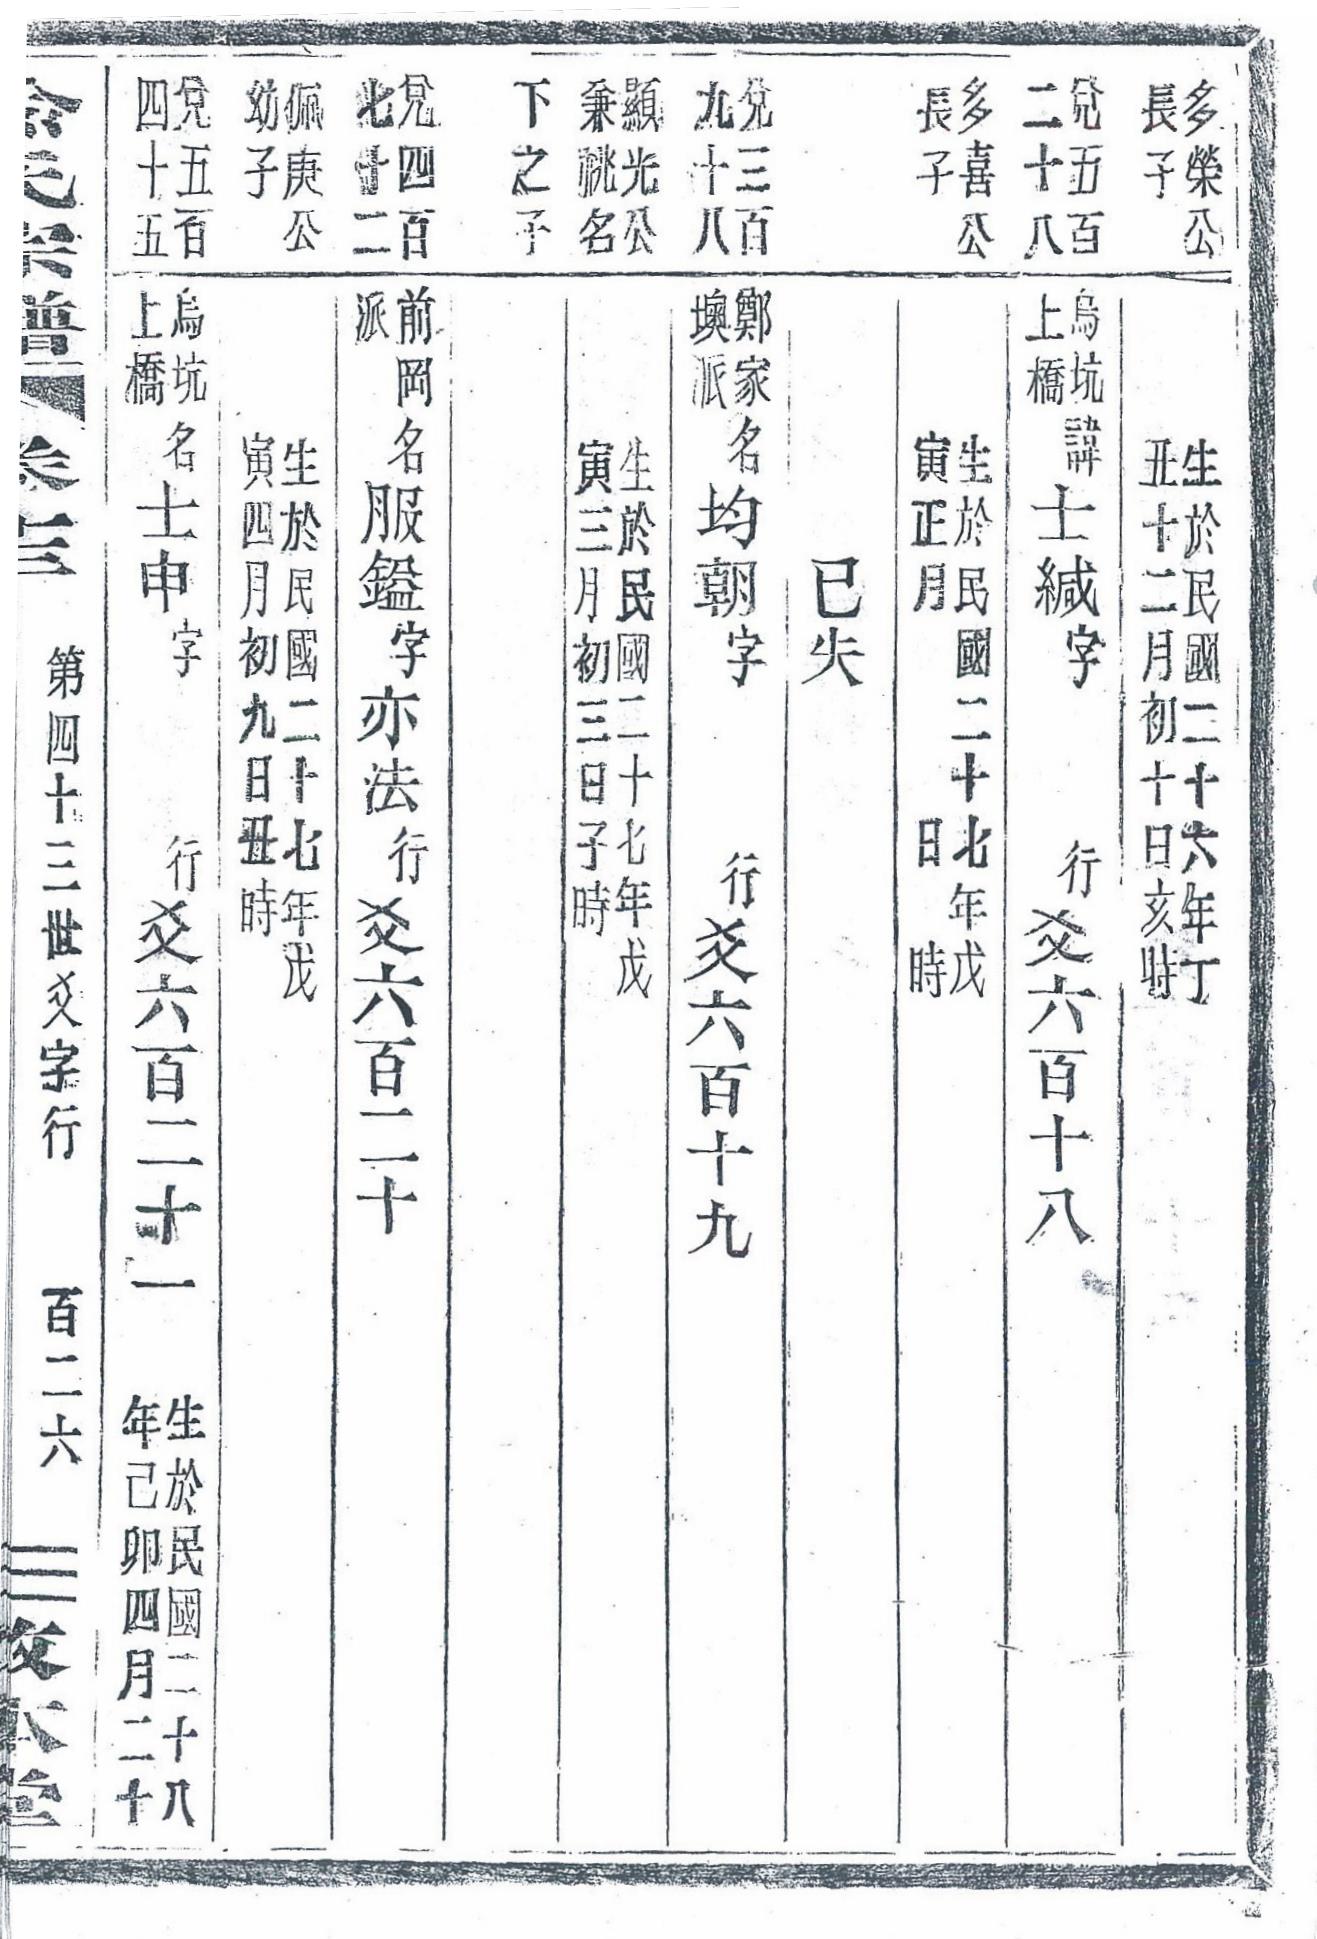 多榮公
長子
生於民國二十六年丁
丑十二月初十日亥時
兌五百
二十八
烏坑
上橋
諱士緘字 行爻六百十八
多喜公
長子
生於民國二十七年戊
寅正月 日 時
已失
兌三百
九十八
鄭家
墺派
名均朝字 行爻六百十九
顯光公
兼祧名
生於民國二十七年戊
寅三月初三日子時
下之子
兌四百
七廿二
前岡
派
名服鎰字亦法行爻六百二十
佩庚公
幼子
生於民國二十七年戊
寅四月初九日丑時
兌五百
四十五
烏坑
上橋
名士申字 行爻六百二十一
生於民國二十八
年己卯四月二十
氏宗譜 卷十三 第四十三世爻字行 百二六 本堂